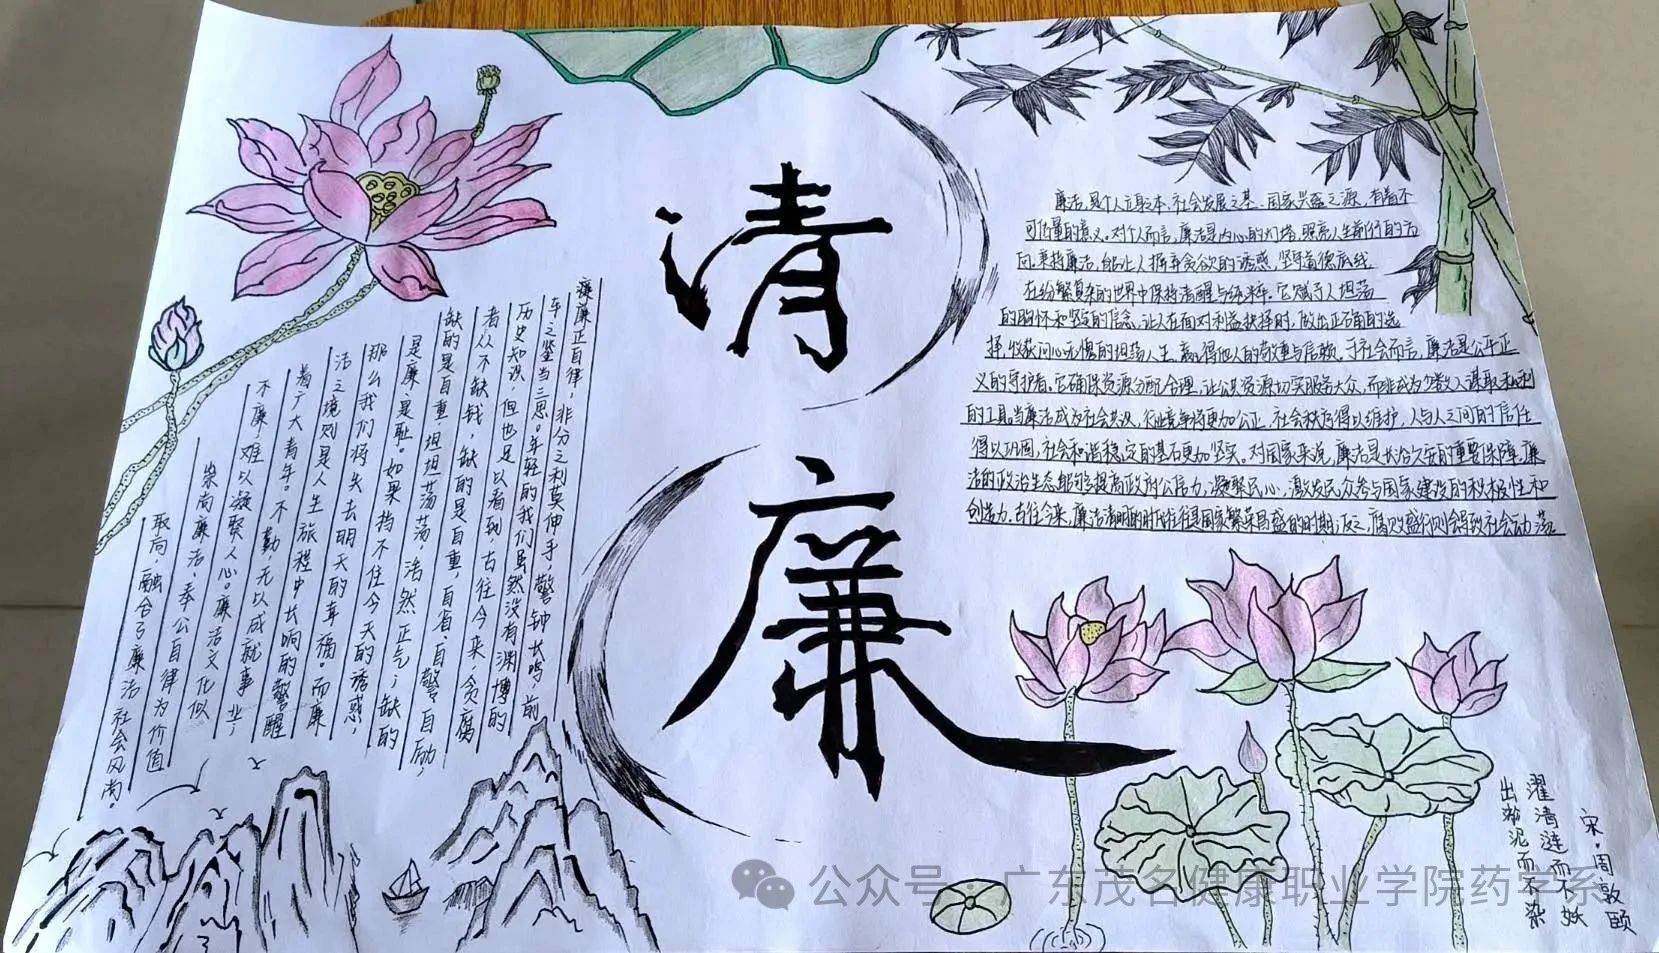 清
廉
廉义廉正自律,非分之利莫伸手,警钟长鸣,前
车之鉴当三思。年轻的我们虽然没有渊博的
历史知识,但也足以看到,古往今来,贪腐
者从不缺钱,缺的是自重,自省、自警、自励,
缺的是自重,坦坦荡荡,浩然正气;缺的
是廉、是耻。如果挡不住今天的诱惑,
那么我们将失去明天的幸福。而廉
洁之境则是人生旅程中长响的警醒
着广大青年。不勤无以成就事业,
不廉,难以凝聚人心。廉洁文化似
崇尚廉洁、奉公自律为价值
取向,融合了廉洁社会风尚。
廉洁,是个人立身之本、社会发展之基、国家兴盛之源,有着不
可估量的意义。对个人而言,廉洁是内心的灯塔,照亮人生前行的方
向。秉持廉洁,能让人摒弃贪欲的诱惑,坚守道德底线
在纷繁复杂的世界中保持清醒与纯粹。它赋予人坦荡
的胸怀和坚定的信念,让人在面对利益抉择时,做出正确的选
择,收获问心无愧的坦荡人生,赢得他人的敬重与信赖。于社会而言,廉洁是公平正
义的守护者,它确保资源分配合理,让公共资源切实服务大众,而非成为少数人谋取私利
的工具。当廉洁成为社会共识,行业竞争将更加公正,社会秩序得以维护,人与人之间的信任
得以巩固,社会和谐稳定的基石更加坚实。对国家来说,廉洁是长治久安的重要保障,廉
洁的政治生态能够提高政府公信力,凝聚民心,激发民众参与国家建设的积极性和
创造力。古往今来,廉洁清明的时代往往是国家繁荣昌盛的时期,反之,腐败盛行则会导致社会动荡
宋·周敦颐
濯清涟而不妖
出淤泥而不染
公众号·广东茂名健康职业学院药学系